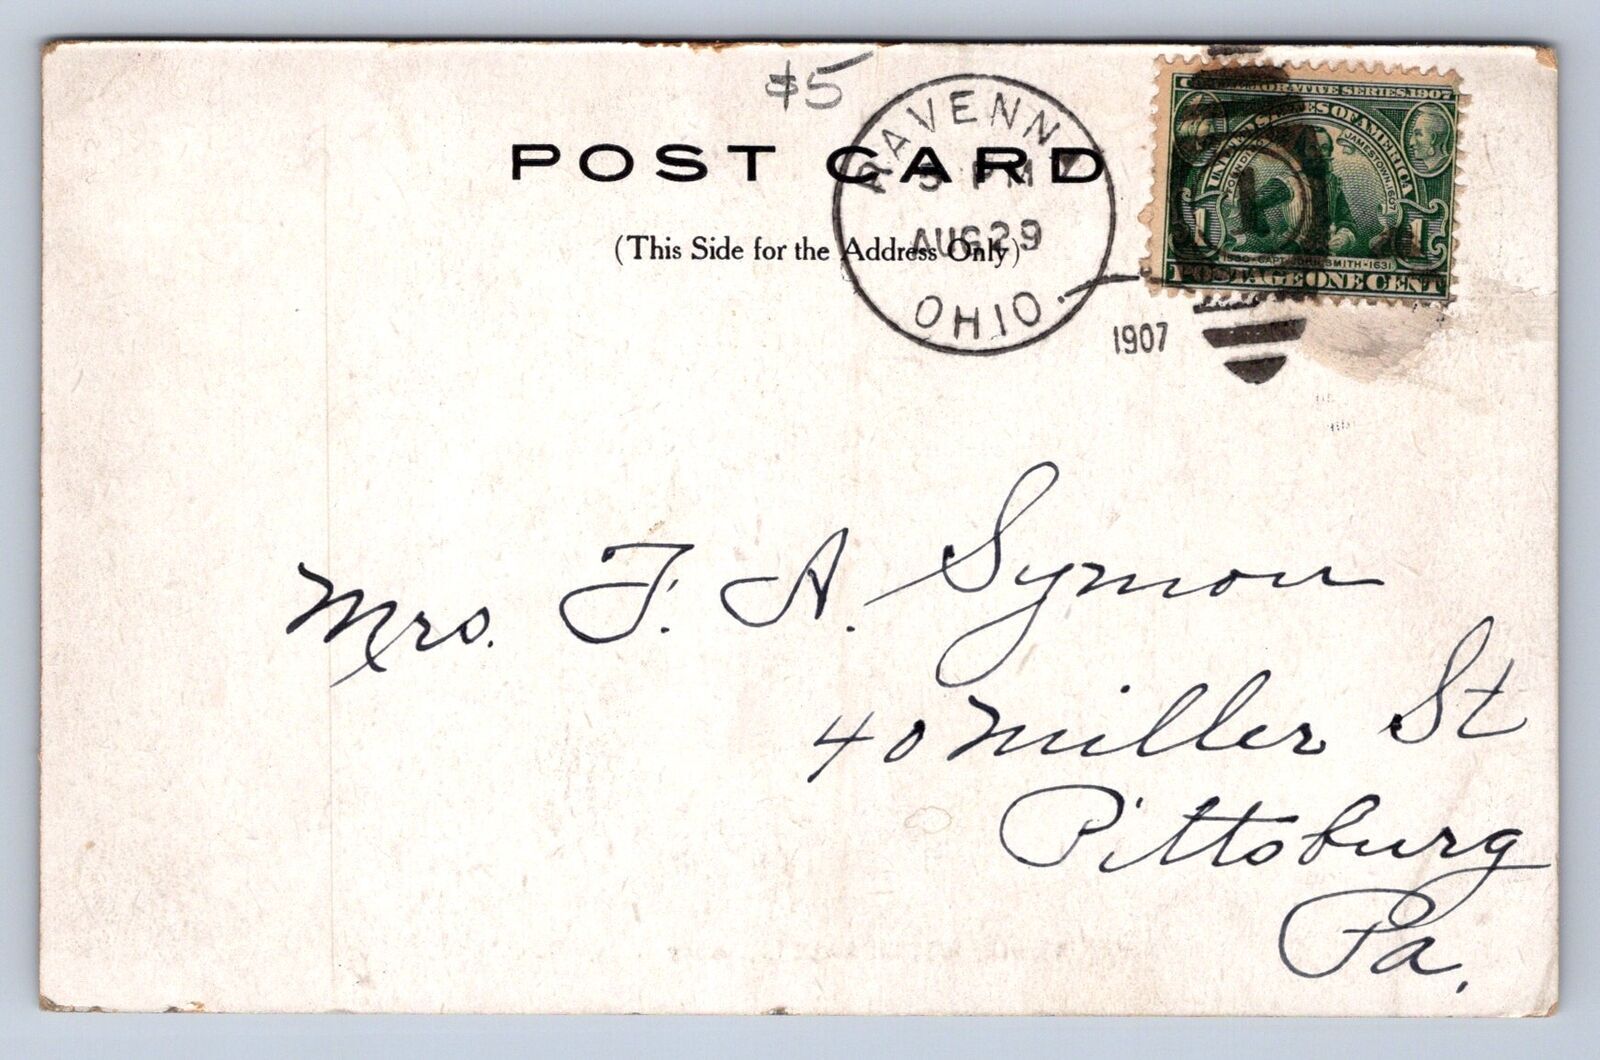 $5
POST CARD
(This Side for the Address Only)
RAVENNA
5 PM
AUG 29
OHIO.
1907
COMMEMORATIVE SERIES 1907
UNITED STATES OF AMERICA
FOUNDING OF JAMESTOWN, 1607
1
1
1
1580-CAPT. JOHN SMITH-1631
POSTAGE ONE CENT
Mrs. F. A. Symon
40 Miller St
Pittsburg
Pa.